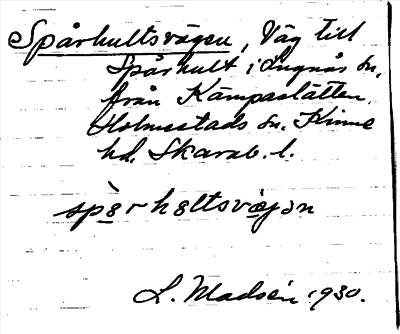 Spårhultsvägen, Väg till
Spårhult i Lugnås sn,
från Kämpaslätten,
Holmestads sn. Kinne
hd. Skarab. l.
L. Madsén 1930.